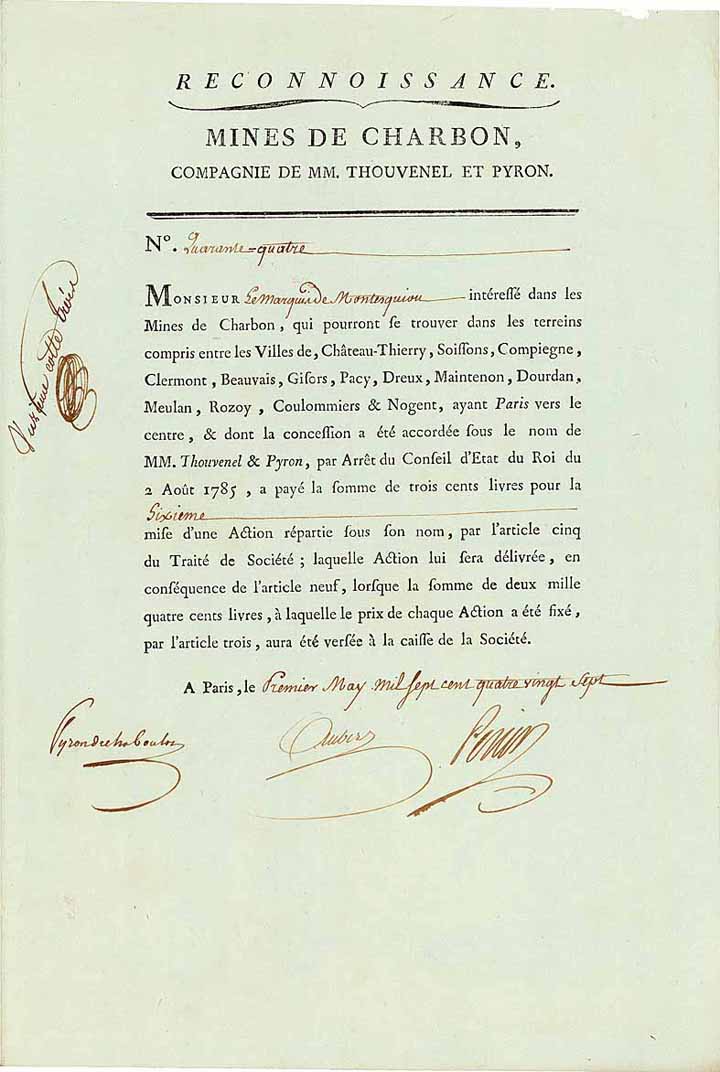 RECONNOISSANCE.
MINES DE CHARBON,
COMPAGNIE DE MM. THOUVENEL ET PYRON.
N°. Quarante=quatre
MONSIEUR Le Marquis de Montesquiou intéressé dans les
Mines de Charbon, qui pourront ſe trouver dans les terreins
compris entre les Villes de, Château-Thierry, Soiſſons, Compiegne,
Clermont, Beauvais, Giſors, Pacy, Dreux, Maintenon, Dourdan,
Meulan, Rozoy, Coulommiers & Nogent, ayant Paris vers le
centre, & dont la conceſſion a été accordée ſous le nom de
MM. Thouvenel & Pyron, par Arrêt du Conſeil d'Etat du Roi du
2 Août 1785, a payé la ſomme de trois cents livres pour la
Sixieme
miſe d'une Action répartie ſous ſon nom, par l'article cinq
du Traité de Société; laquelle Action lui ſera délivrée, en
conſéquence de l'article neuf, lorſque la ſomme de deux mille
quatre cents livres, à laquelle le prix de chaque Action a été fixé,
par l'article trois, aura été verſée à la caiſſe de la Société.
A Paris, le Premier May mil sept cent quatre vingt sept
Aubert